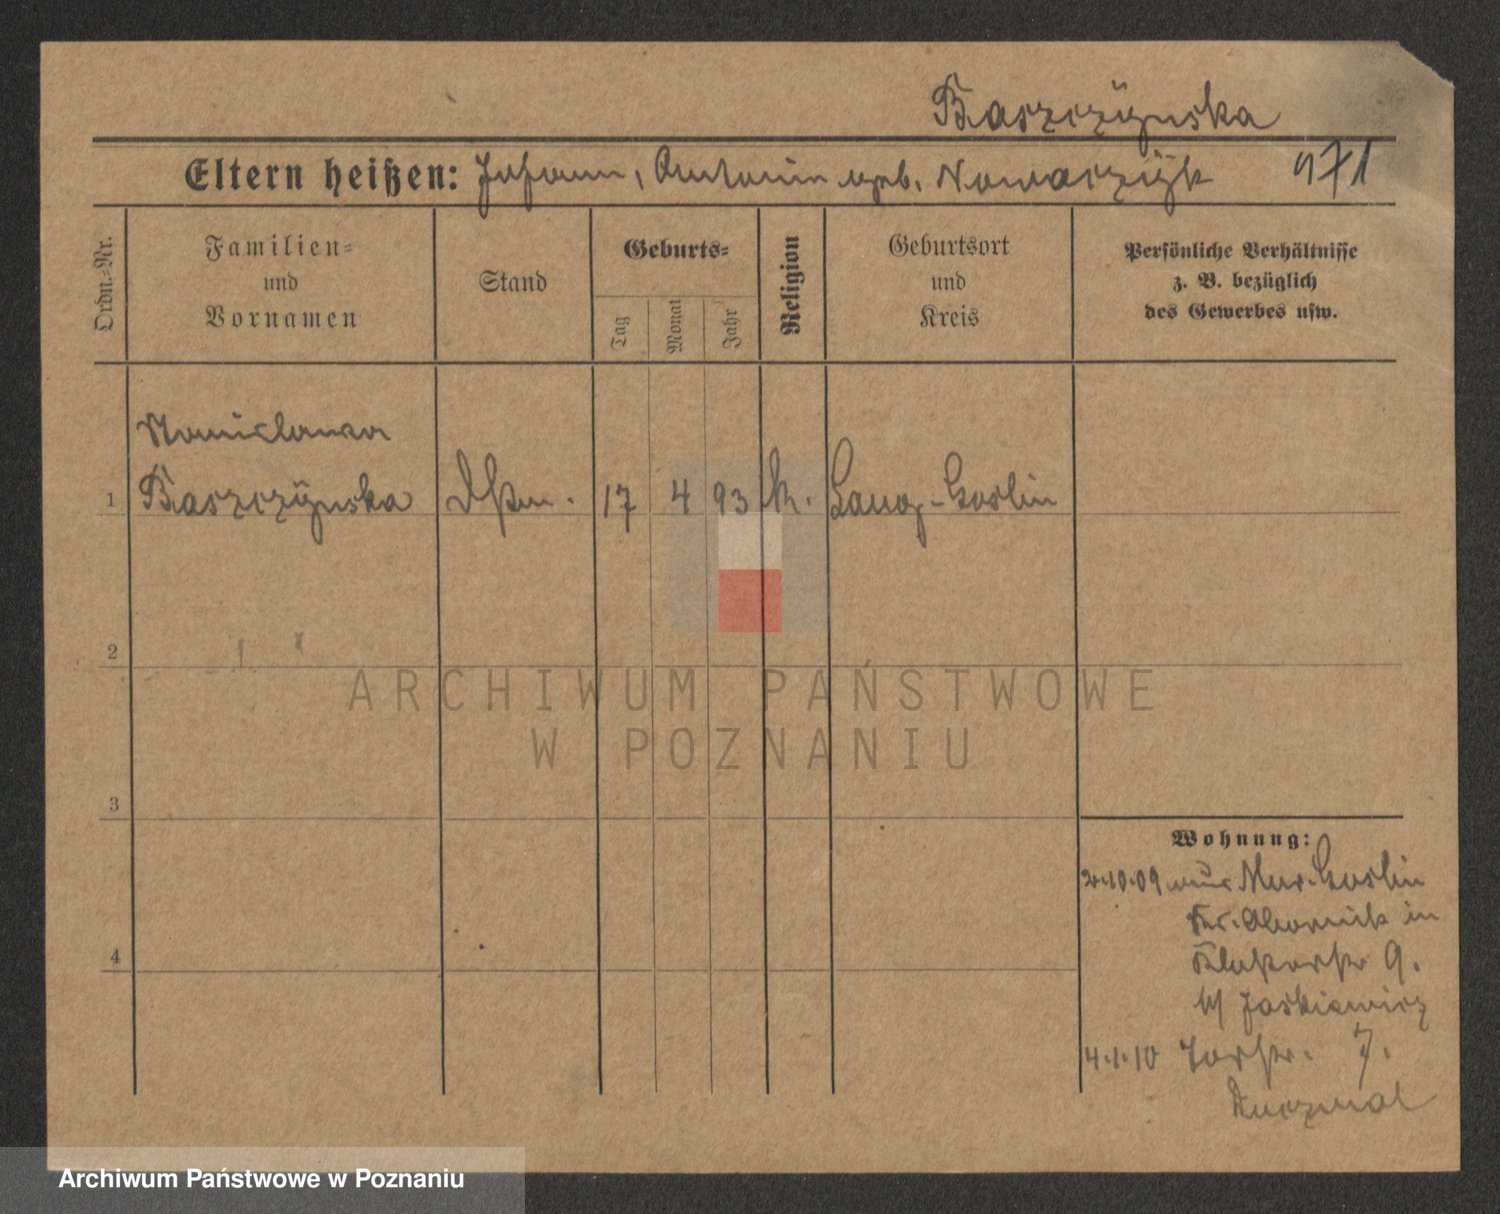 Baszczÿnska
Eltern heißen: Johann, Antonin geb. Nowarzÿk 971
Ordn.-Nr.
Familien-
und
Vornamen
Stand
Geburts-
Tag
Monat
Jahr
Religion
Geburtsort
und
Kreis
Persönliche Verhältnisse
z. B. bezüglich
des Gewerbes usw.
Stanislawa
1 Baszczÿnska Dstm. 17 4 93 k. Lang-Goslin
2
ARCHIWUM PAŃSTWOWE
W POZNANIU
3
Wohnung:
2.10.09 aus Mur. Goslin
Kr. Obornik in
4
9.
Jaskiewicz
4.1.10 Torstr. 7.
Kuczmal
Archiwum Państwowe w Poznaniu